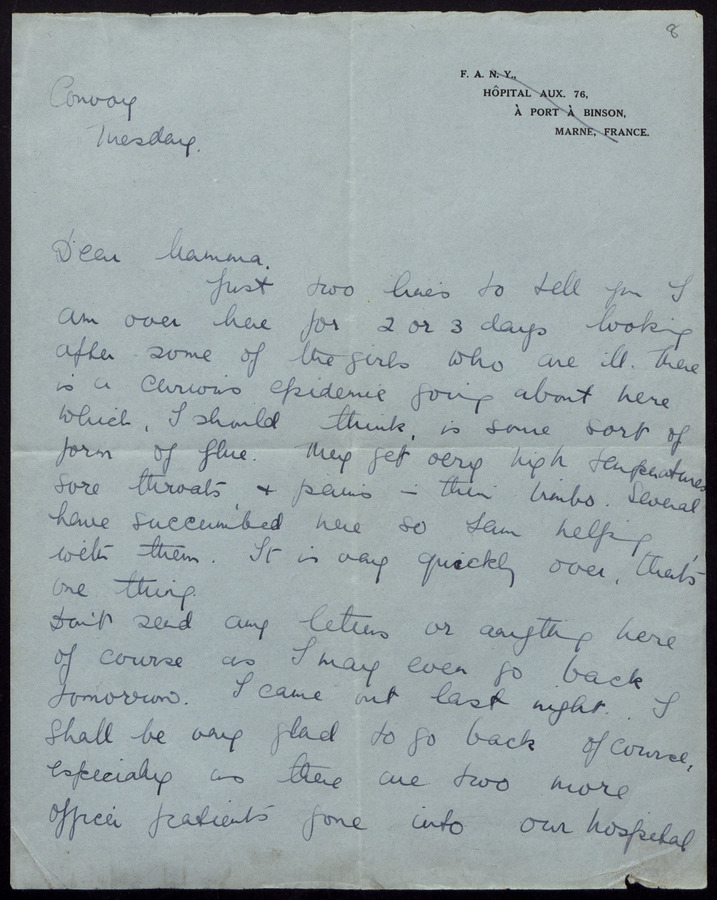 8
F. A. N. Y.,
HÔPITAL AUX. 76,
À PORT À BINSON,
MARNE, FRANCE.
Convoy
Tuesday.
Dear Mamma.
Just two lines to tell you I
am over here for 2 or 3 days looking
after some of the girls who are ill. There
is a curious epidemic going about here
which, I should think, is some sort of
form of flue. They get very high temperatures
sore throats & pains in their limbs. Several
have succumbed here so I am helping
with them. It is very quickly over, that's
one thing.
Don't send any letters or anything here
of course as I may even go back
tomorrow. I came out last night. I
shall be very glad to go back of course,
especially as there are two more
officer patients gone into our hospital